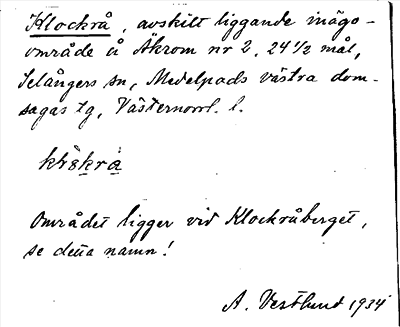 Klockrå, avskilt liggande inägo-
område å Åkrom nr 2, 24 1/2 mål,
Selångers sn, Medelpads västra dom-
sagas tg, Västernorrl. l.
Området ligger vid Klockråberget,
se detta namn!
A. Vestlund 1934